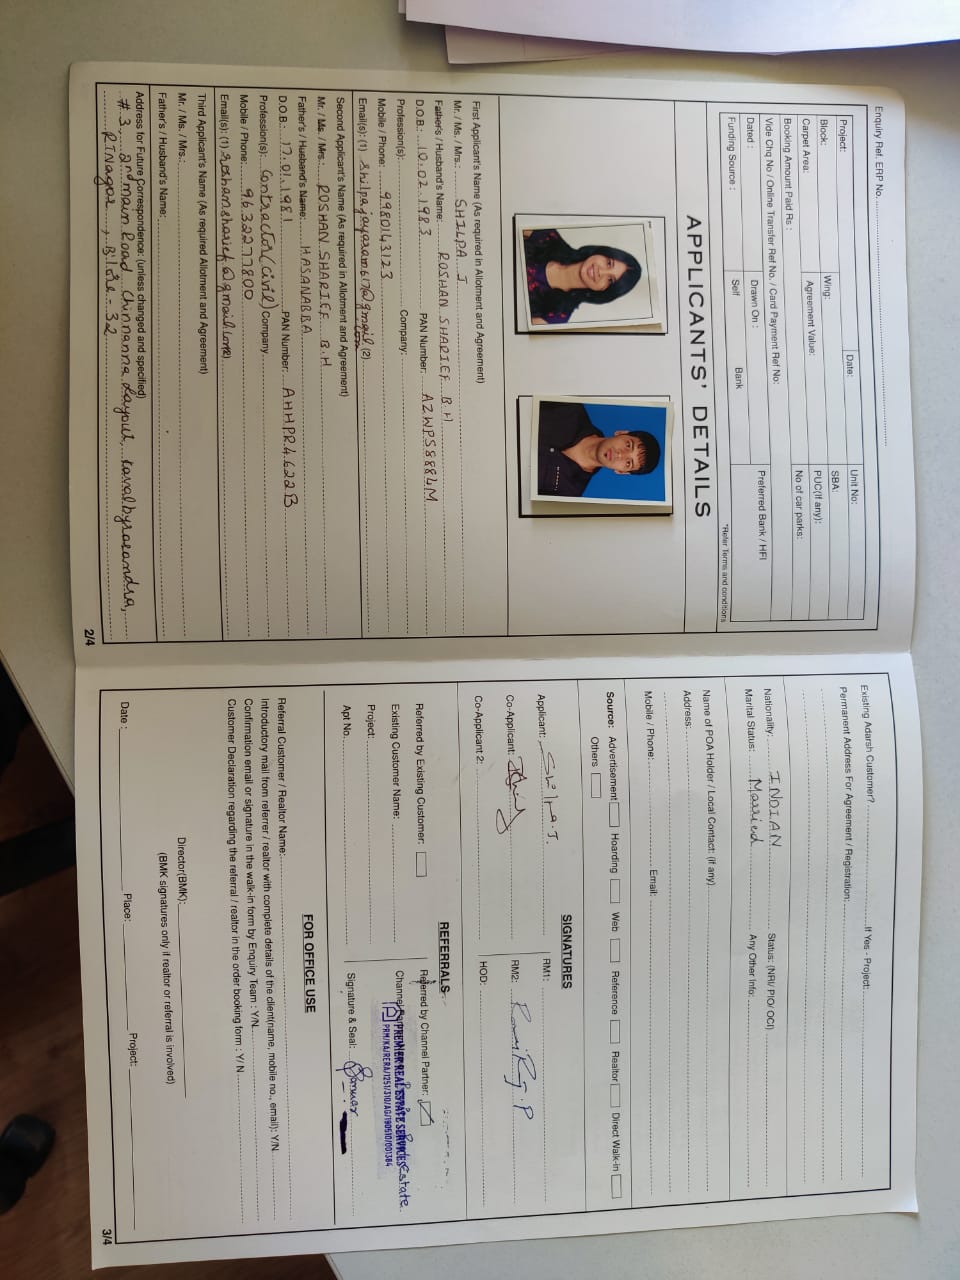 Enquiry Ref. ERP No.
Project: Date: Unit No:
Block: Wing: SBA:
Carpet Area: Agreement Value: PUC(If any):
Booking Amount Paid Rs : No of car parks:
Vide Chq No / Online Transfer Ref No. / Card Payment Ref No:
Dated : Drawn On : Preferred Bank / HFI
Funding Source : Self Bank
*Refer Terms and conditions
APPLICANTS' DETAILS
First Applicant's Name (As required in Allotment and Agreement)
Mr. / Ms. / Mrs.: SHILPA J
Father's / Husband's Name: ROSHAN SHARIEF B.H
D.O.B.: 10.02.1983 PAN Number: AZWPS8884M
Profession(s): Company:
Mobile / Phone: 9980143123
Email(s): (1) shilpajayaram67@gmail.com (2)
Second Applicant's Name (As required in Allotment and Agreement)
Mr. / Ms. / Mrs.: ROSHAN SHARIEF B.H
Father's / Husband's Name: HASANABBA
D.O.B.: 17.01.1981 PAN Number: AHHPR4622B
Profession(s): Contractor (Civil) Company:
Mobile / Phone: 9632277800
Email(s): (1) roshansharief@gmail.com (2)
Third Applicant's Name (As required Allotment and Agreement)
Mr. / Ms. / Mrs.:
Father's / Husband's Name:
Address for Future Correspondence: (unless changed and specified)
# 3, 2nd main Road, Chinnanna Layout,
RTNagar, B'lore - 32
2/4
Existing Adarsh Customer? If Yes - Project:
Permanent Address For Agreement / Registration:
Nationality: INDIAN Status: (NRI/ PIO/ OCI)
Marital Status: Married Any Other Info:
Name of POA Holder / Local Contact: (If any)
Address:
Mobile / Phone: Email:
Source: Advertisement Hoarding Web Reference Realtor Direct Walk-in
Others
SIGNATURES
Applicant: Shilpa.J. RM1:
Co-Applicant: RM2:
Co-Applicant 2: HOD:
REFERRALS
Referred by Existing Customer: Referred by Channel Partner:
Existing Customer Name: Channel Partner Estate
PREMIER REAL ESTATE SERVICES
PRM/KA/RERA/1251/310/AG/190510/001384
Project:
Apt No. Signature & Seal:
FOR OFFICE USE
Referral Customer / Realtor Name:
Introductory mail from referrer / realtor with complete details of the client(name, mobile no., email): Y/N
Confirmation email or signature in the walk-in form by Enquiry Team : Y/N
Customer Declaration regarding the referral / realtor in the order booking form : Y/ N
Director(BMK):
(BMK signatures only if realtor or referral is involved)
Date : Place: Project:
3/4